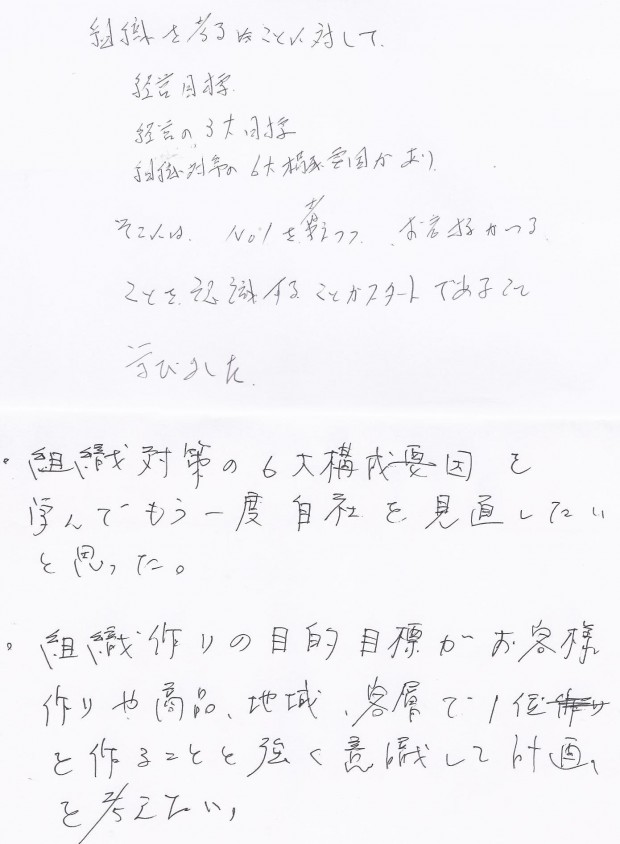 組織を考えることに対して、
経営目標
経営の3大目標
組織対策の6大構成要因があり
そこには、No1を考えつつ、お客様がつる
ことを認識することがスタートであること
学びました。
・組織対策の6大構成要因を
学んでもう一度自社を見直したい
と思った。
・組織作りの目的目標がお客様
作りや商品、地域、客層で1位
を作ることと強く意識して計画、
を考えたい、